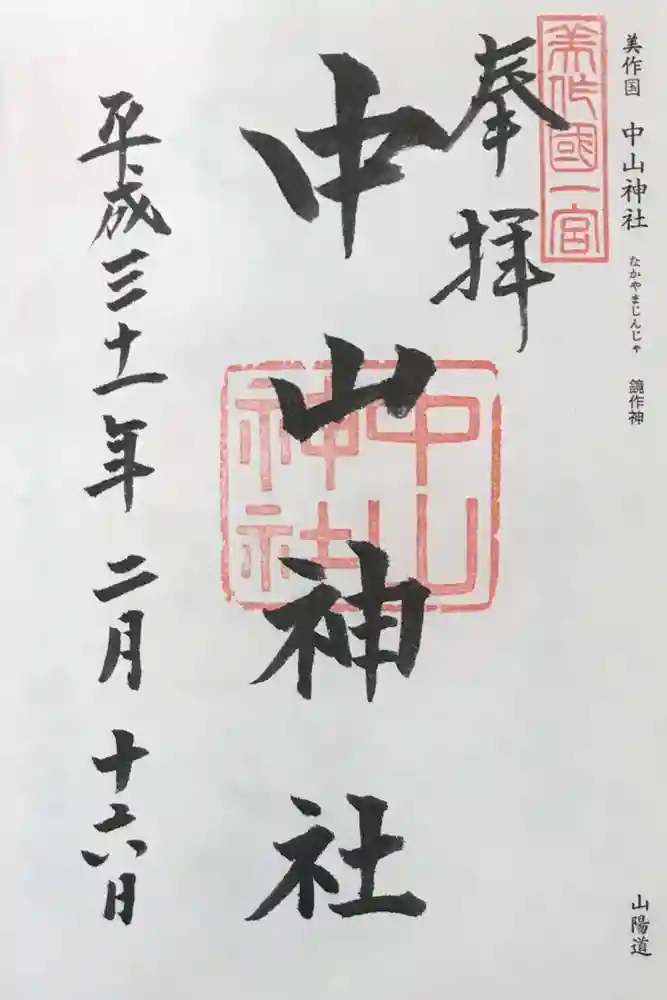 美作国 中山神社 なかやまじんじゃ 鏡作神
山陽道
美作國一宮
奉拝
中山神社
中山神社
平成三十一年二月十六日